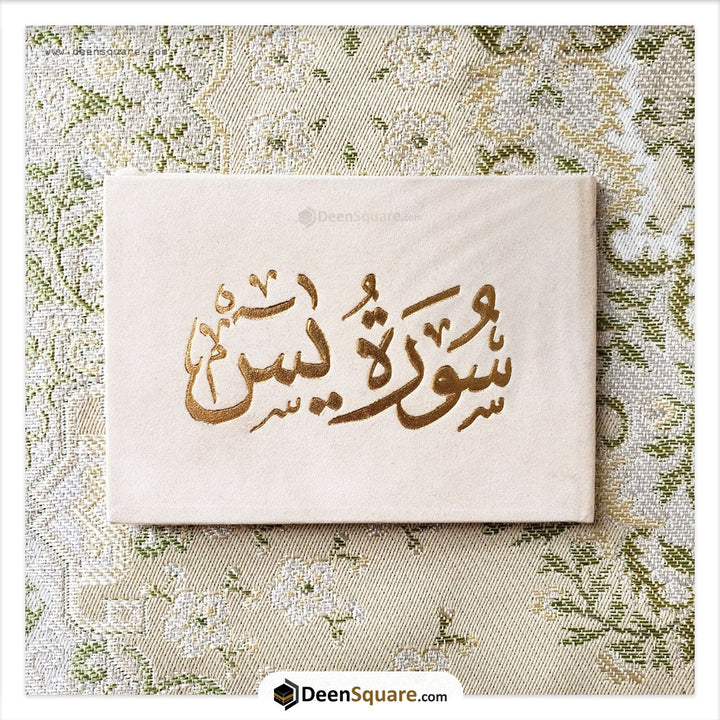 www.deensquare.com
DeenSquare.com
سُورَةُ يٰسٓ
DeenSquare.com